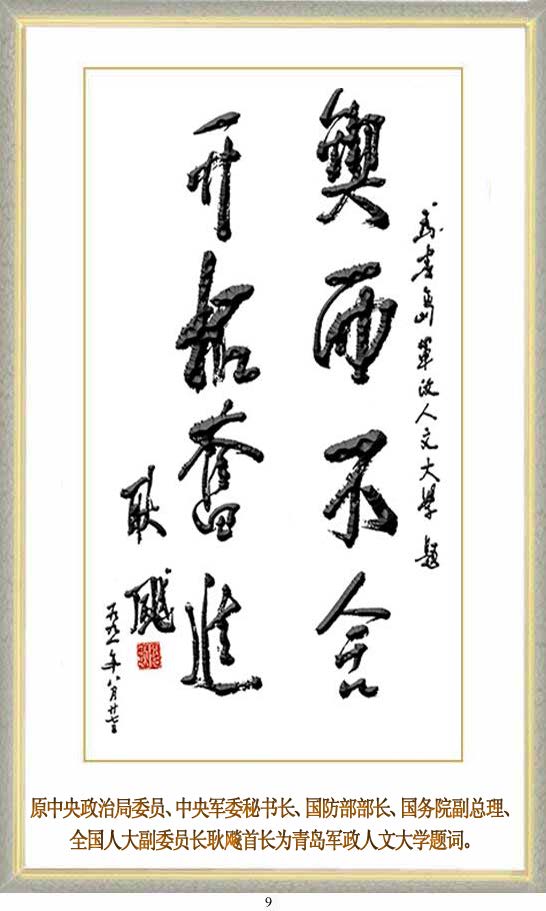 为青岛军政人文大学题
锲而不舍
开拓奋进
耿飚
一九九一年八月廿
原中央政治局委员、中央军委秘书长、国防部部长、国务院副总理、
全国人大副委员长耿飚首长为青岛军政人文大学题词。
9